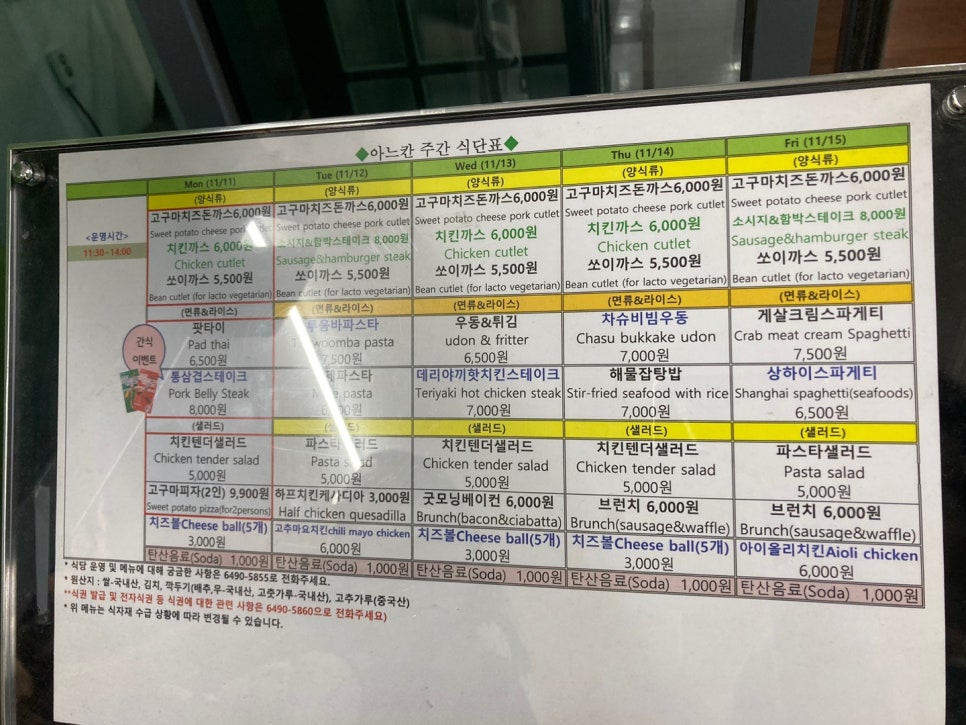 ◆아느칸 주간 식단표◆
Mon (11/11) Tue (11/12) Wed (11/13) Thu (11/14) Fri (11/15)
<운영시간>
11:30~14:00
(양식류) (양식류) (양식류) (양식류) (양식류)
고구마치즈돈까스6,000원 고구마치즈돈까스6,000원 고구마치즈돈까스6,000원 고구마치즈돈까스6,000원 고구마치즈돈까스6,000원
Sweet potato cheese pork cutlet Sweet potato cheese pork cutlet Sweet potato cheese pork cutlet Sweet potato cheese pork cutlet Sweet potato cheese pork cutlet
치킨까스 6,000원 소시지&함박스테이크 8,000원 치킨까스 6,000원 치킨까스 6,000원 소시지&함박스테이크 8,000원
Chicken cutlet Sausage&hamburger steak Chicken cutlet Chicken cutlet Sausage&hamburger steak
쏘이까스 5,500원 쏘이까스 5,500원 쏘이까스 5,500원 쏘이까스 5,500원 쏘이까스 5,500원
Bean cutlet (for lacto vegetarian) Bean cutlet (for lacto vegetarian) Bean cutlet (for lacto vegetarian) Bean cutlet (for lacto vegetarian) Bean cutlet (for lacto vegetarian)
(면류&라이스) (면류&라이스) (면류&라이스) (면류&라이스) (면류&라이스)
간식
이벤트
팟타이 투움바파스타 우동&튀김 차슈비빔우동 게살크림스파게티
Pad thai pasta udon & fritter Chasu bukkake udon Crab meat cream Spaghetti
6,500원 7,500원 6,500원 7,000원 7,500원
통삼겹스테이크 데리야끼핫치킨스테이크 해물잡탕밥 상하이스파게티
Pork Belly Steak pasta Teriyaki hot chicken steak Stir-fried seafood with rice Shanghai spaghetti(seafoods)
8,000원 7,000원 7,000원 6,500원
(샐러드) (샐러드) (샐러드) (샐러드) (샐러드)
치킨텐더샐러드 파스타샐러드 치킨텐더샐러드 치킨텐더샐러드 파스타샐러드
Chicken tender salad Pasta salad Chicken tender salad Chicken tender salad Pasta salad
5,000원 5,000원 5,000원 5,000원 5,000원
고구마피자(2인) 9,900원 하프치킨케사디아 3,000원 굿모닝베이컨 6,000원 브런치 6,000원 브런치 6,000원
Sweet potato pizza(for2persons) Half chicken quesadilla Brunch(bacon&ciabatta) Brunch(sausage&waffle) Brunch(sausage&waffle)
치즈볼Cheese ball(5개) 고추마요치킨chili mayo chicken 치즈볼Cheese ball(5개) 치즈볼Cheese ball(5개) 아이올리치킨Aioli chicken
3,000원 6,000원 3,000원 3,000원 6,000원
탄산음료(Soda) 1,000원 탄산음료(Soda) 1,000원 탄산음료(Soda) 1,000원 탄산음료(Soda) 1,000원 탄산음료(Soda) 1,000원
* 식당 운영 및 메뉴에 대해 궁금한 사항은 6490-5855로 전화주세요.
* 원산지 : 쌀-국내산, 김치, 깍두기(배추,무-국내산, 고춧가루-국내산), 고추가루(중국산)
**식권 발급 및 전자식권 등 식권에 대한 관련 사항은 6490-5860으로 전화주세요)
* 위 메뉴는 식자재 수급 상황에 따라 변경될 수 있습니다.